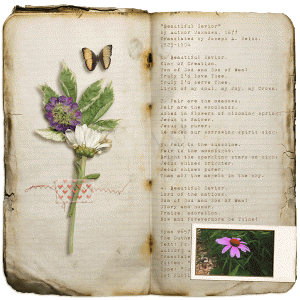 "Beautiful Savior"
by Author Unknown, 1677
Translated by Joseph A. Seiss,
1823-1904
Beautiful Savior,
King of Creation,
Son of God and Son of Man!
Truly I'd love Thee,
Truly I'd serve Thee,
Light of my soul, my Joy, my Crown.
2. Fair are the meadows,
Fair are the woodlands,
Robed in flowers of blooming spring;
Jesus is fairer,
Jesus is purer,
He makes our sorrowing spirit sing.
Fair is the sunshine,
Fair is the moonlight,
Bright the sparkling stars on high;
Jesus shines brighter,
Jesus shines purer
Than all the angels in the sky.
4. Beautiful Savior,
Lord of the nations,
Son of God and Son of Man!
Glory and honor,
Praise, adoration,
Now and forevermore be Thine!
Hymn